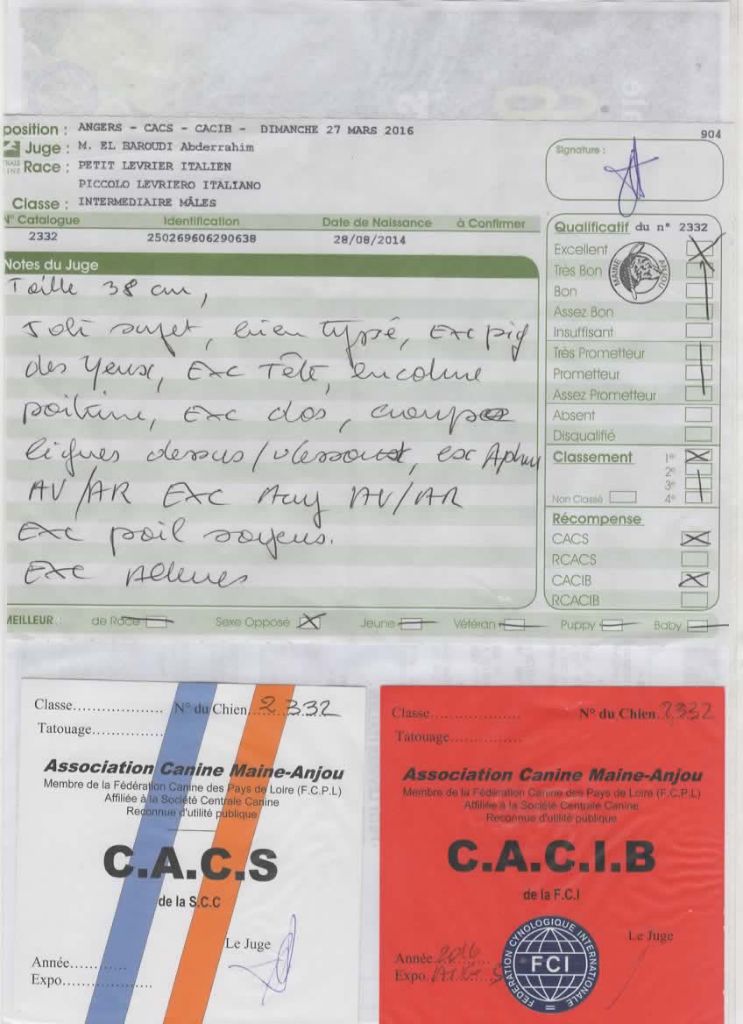 position : ANGERS - CACS - CACIB - DIMANCHE 27 MARS 2016
904
Juge : M. EL BAROUDI Abderrahim
Race : PETIT LEVRIER ITALIEN
PICCOLO LEVRIERO ITALIANO
Classe : INTERMEDIAIRE MÂLES
Signature :
N° Catalogue Identification Date de Naissance à Confirmer
2332 250269606290638 28/08/2014
Notes du Juge
Taille 38 cm,
Joli sujet, bien typé, Exc pig
des yeux, Exc Tête, encolure
poitrine, Exc dos, croupe
lignes dessus/dessous, exc
AV/AR Exc AV/AR
Exc poil soyeux.
Exc
Qualificatif du n° 2332
Excellent
Très Bon
Bon
Assez Bon
Insuffisant
Très Prometteur
Prometteur
Assez Prometteur
Absent
Disqualifié
MAINE ANJOU
Classement 1er
2e
3e
Non Classé 4e
Récompense
CACS
RCACS
CACIB
RCACIB
MEILLEUR : de Race Sexe Opposé Jeune Vétéran Puppy Baby
Classe................... N° du Chien. 2332
Tatouage...............
Association Canine Maine-Anjou
Membre de la Fédération Canine des Pays de Loire (F.C.P.L)
Affiliée à la Société Centrale Canine
Reconnue d'utilité publique
C.A.C.S
de la S.C.C
Le Juge
Année............
Expo...................
Classe................... N° du Chien. 2332
Tatouage...............
Association Canine Maine-Anjou
Membre de la Fédération Canine des Pays de Loire (F.C.P.L)
Affiliée à la Société Centrale Canine
Reconnue d'utilité publique
C.A.C.I.B
de la F.C.I
Le Juge
Année 2016
Expo.
FEDERATION CYNOLOGIQUE INTERNATIONALE
FCI